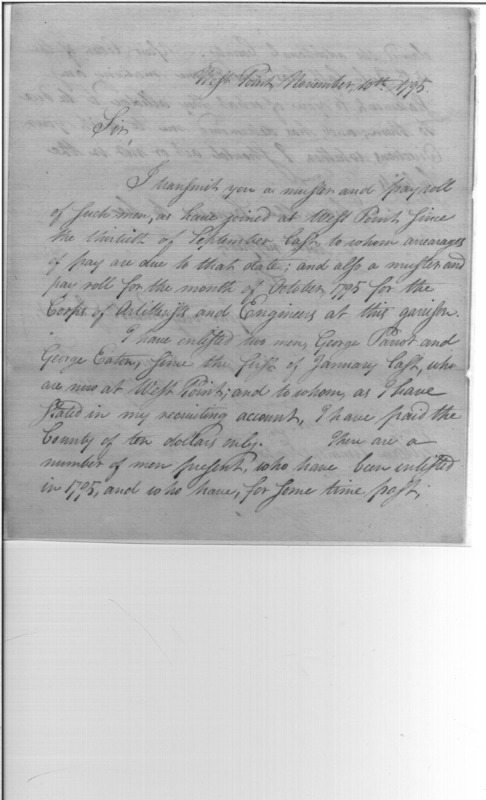 West Point November 10th. 1795.
Sir,
I transmit you a muster and pay roll
of such men, as have joined at West Point since
the thirtieth of September last, to whom arrearages
of pay are due to that date; and also a muster and
pay roll for the month of October, 1795 for the
Corps of Artillerists and Engineers at this garison.
I have enlisted two men, George Parrot and
George Eaton, since the first of January last, who
are now at West Point; and to whom, as I have
stated in my recruiting account, I have paid the
bounty of ten dollars only. There are a
number of men present, who have been enlisted
in 1795, and who have, for some time past,